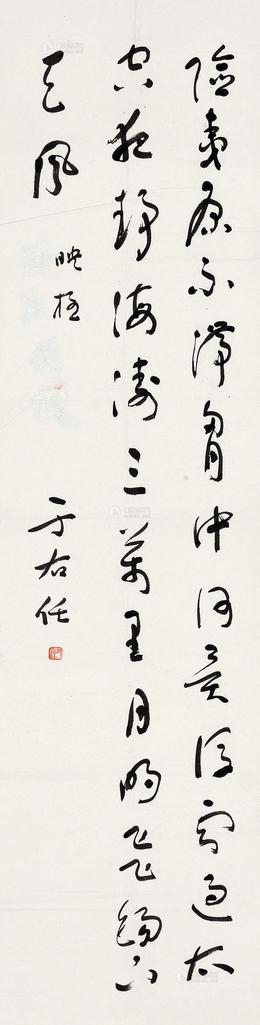 險夷原不滯胸中何異浮雲過太
空夜靜海濤三萬里月明飛錫下
天風
映極
于右任